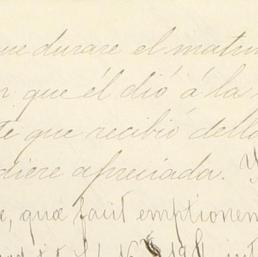 que durare el matrim
r que él dió á la
te que recibió della
diere apreciada. Y
e, quæ facit emptionem